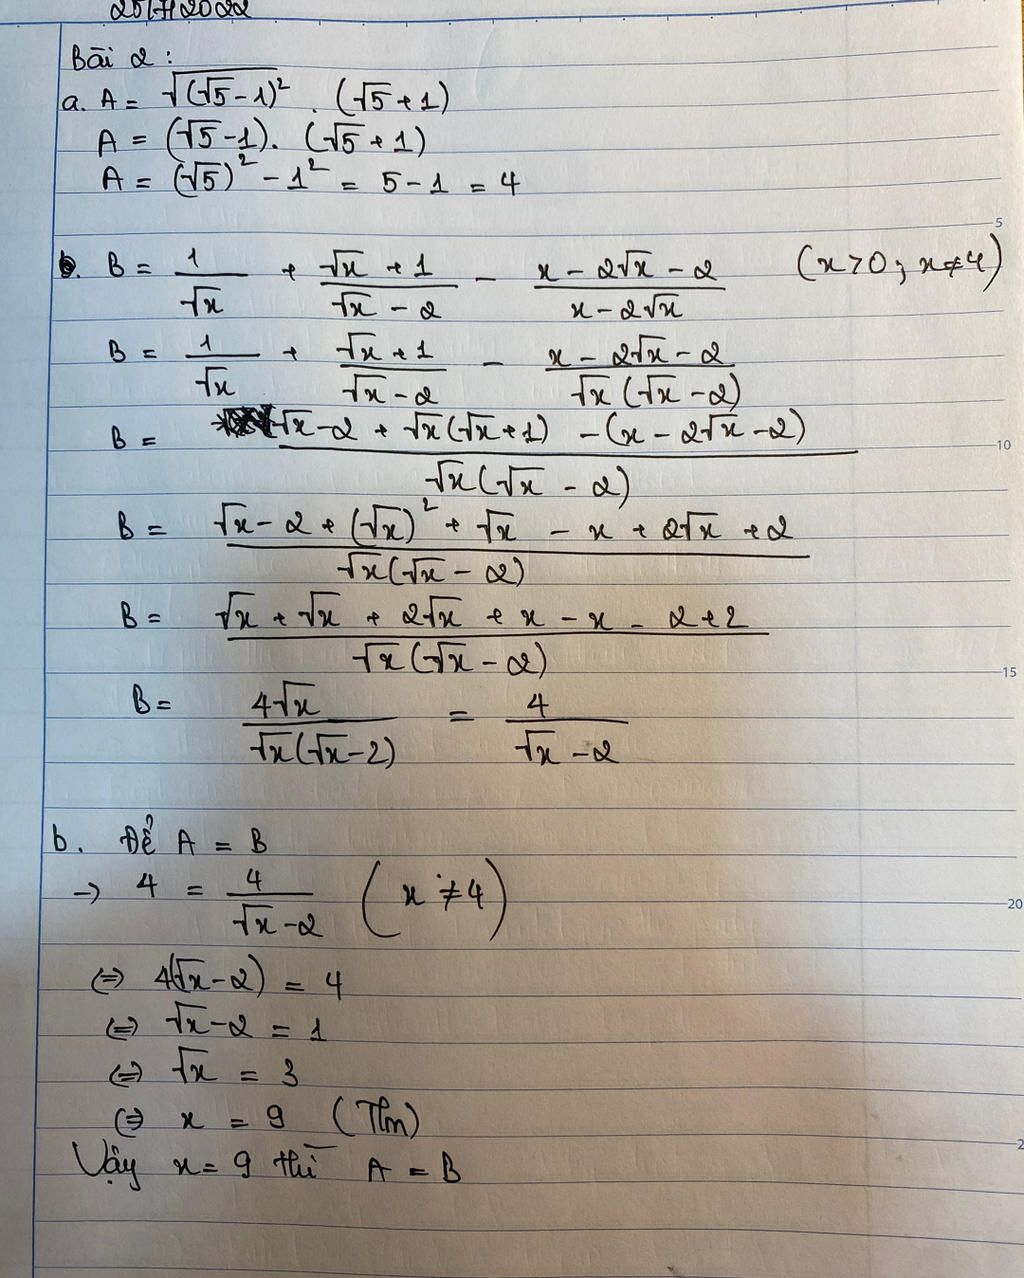 25/7/2022
Bài 2:
a. A = √(√5-1)² . (√5+1)
A = (√5-1). (√5+1)
A = (√5)² - 1² = 5-1 = 4
b. B = 1/√x + (√x+1)/(√x-2) - (x-2√x-2)/(x-2√x) (x>0; x≠4)
B = 1/√x + (√x+1)/(√x-2) - (x-2√x-2)/(√x(√x-2))
B = (√x-2 + √x(√x+1) -(x-2√x-2))/(√x(√x-2))
B = (√x-2+(√x)²+√x - x + 2√x +2)/(√x(√x-2))
B = (√x + √x + 2√x + x - x - 2+2)/(√x(√x-2))
B = 4√x/(√x(√x-2)) = 4/(√x-2)
b. Để A = B
→ 4 = 4/(√x-2) (x ≠ 4)
⇔ 4(√x-2) = 4
⇔ √x-2 = 1
⇔ √x = 3
⇔ x = 9 (Tm)
Vậy x = 9 thì A = B
5
10
15
20
2